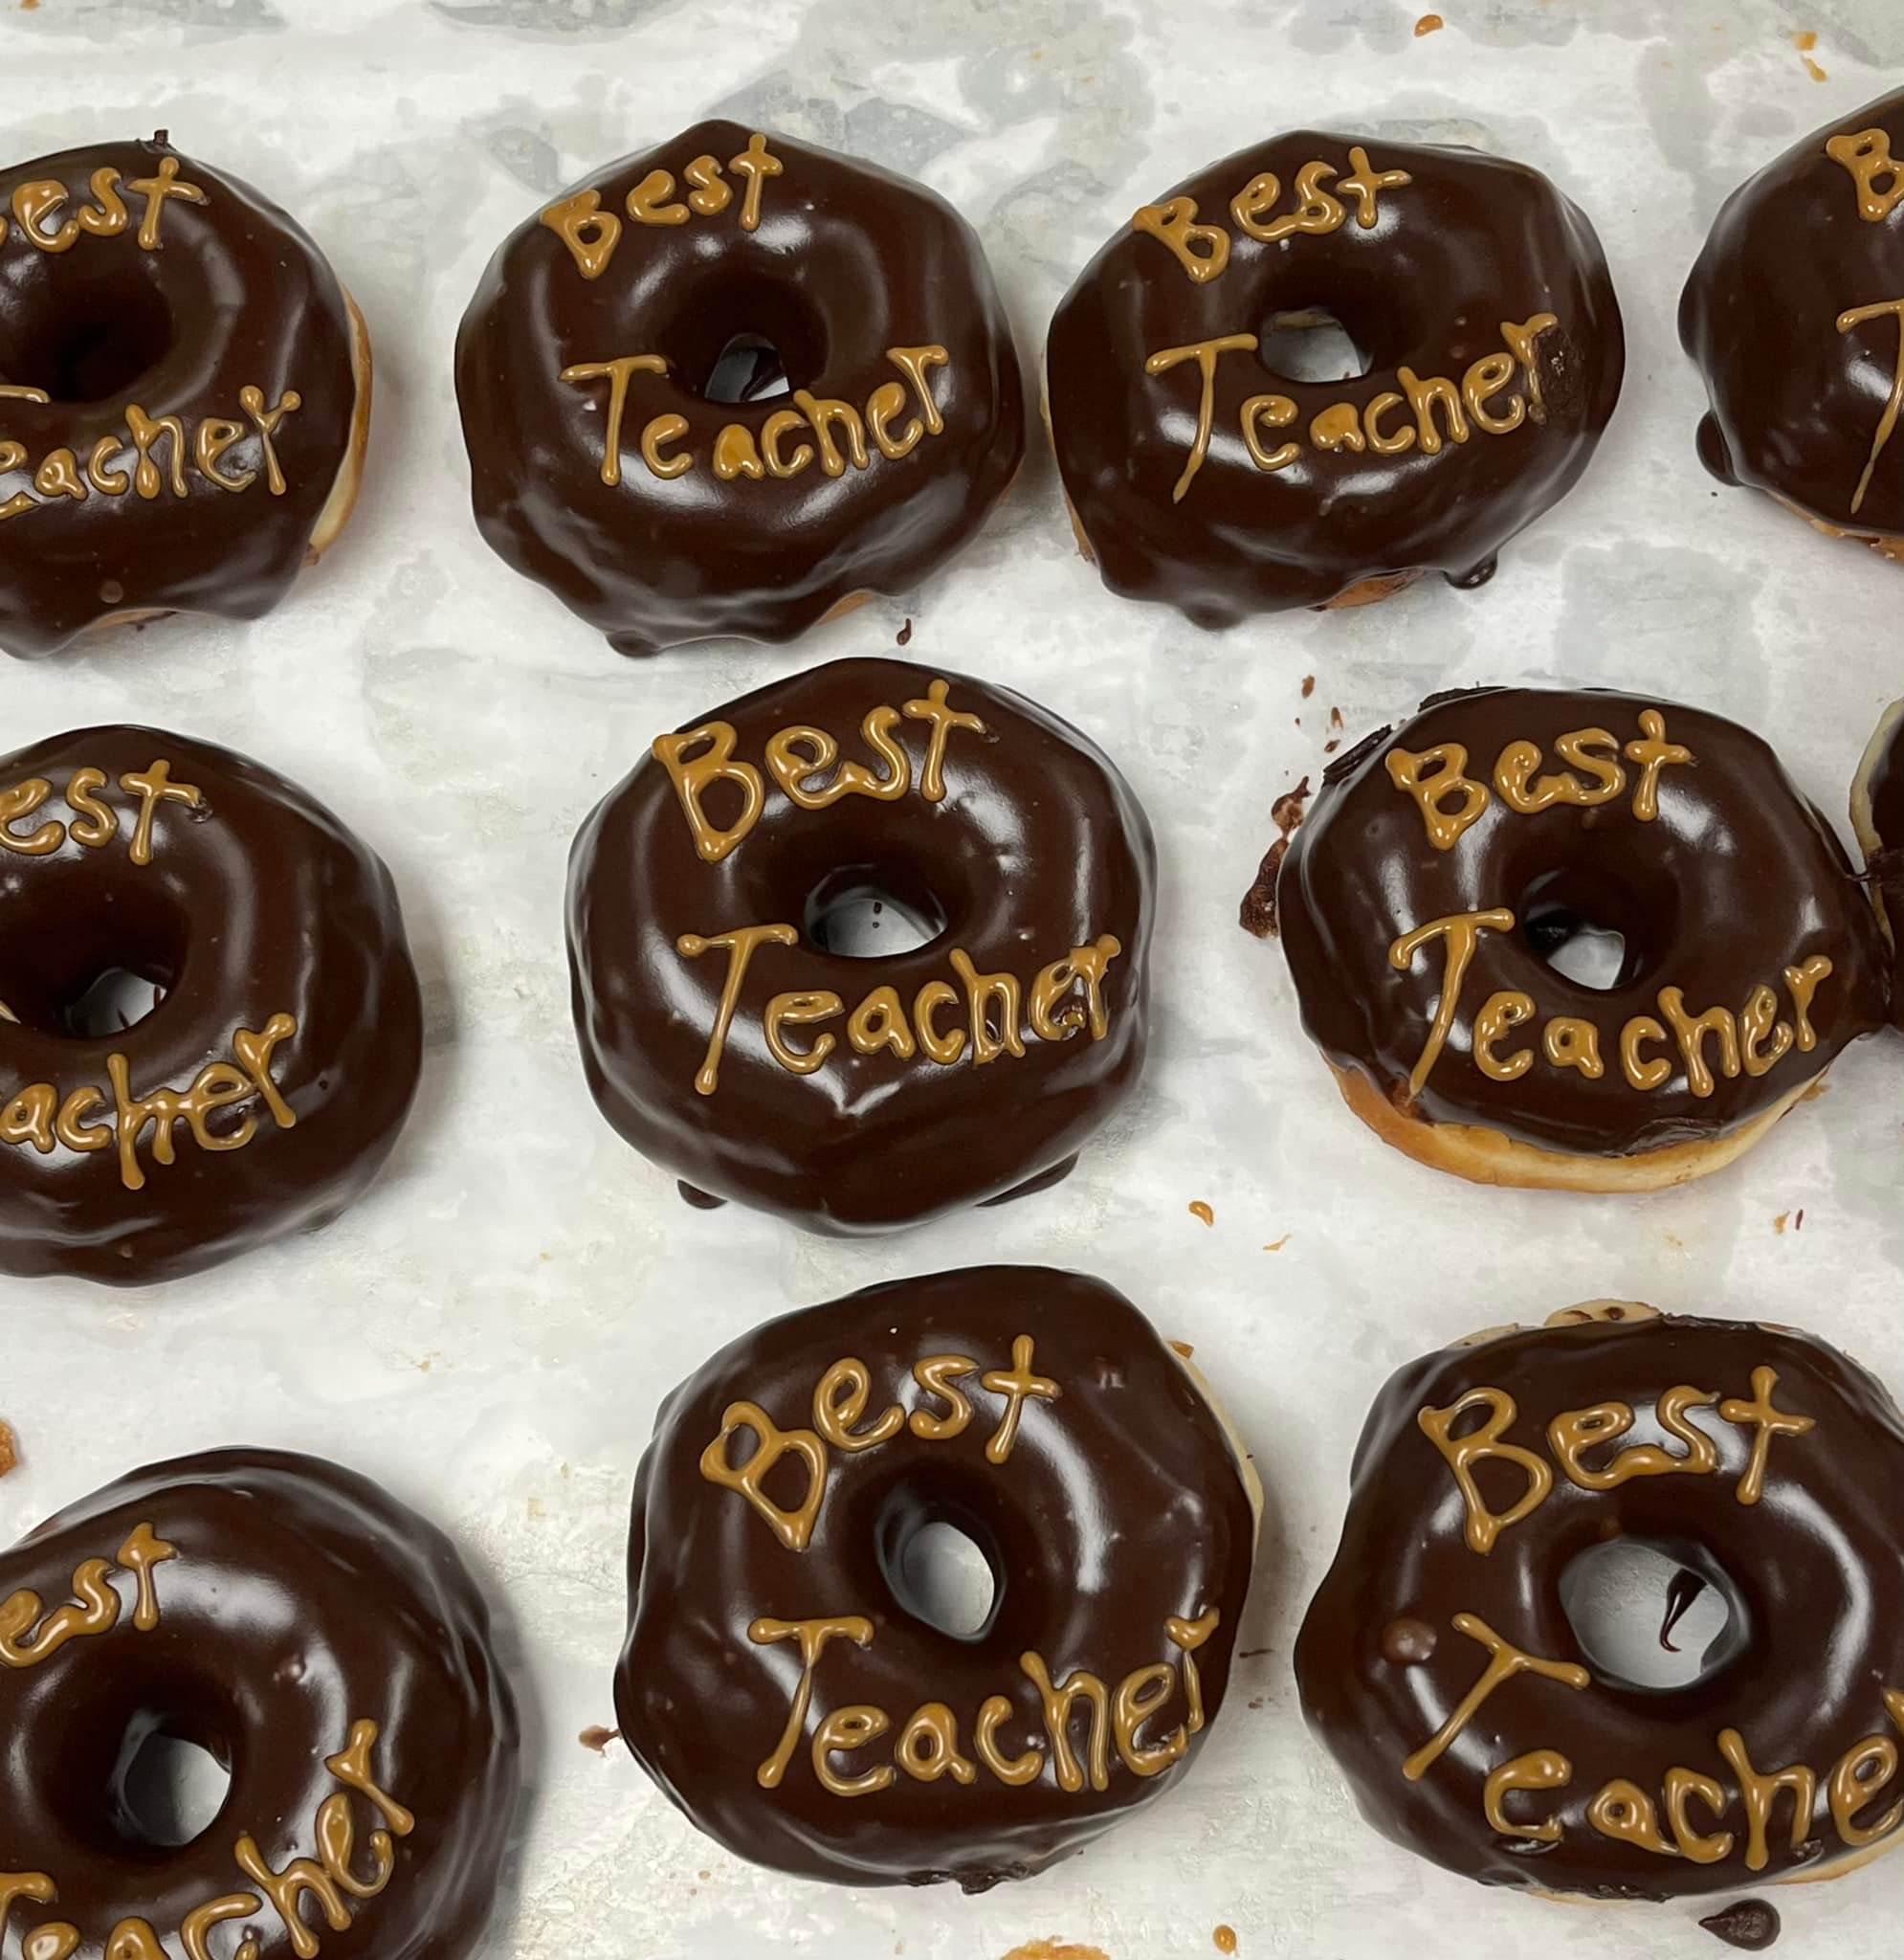 est
eacher
Best
Teacher
Best
Teacher
B
T
est
acher
Best
Teacher
Best
Teacher
est
Teacher
Best
Teacher
Best
Teache